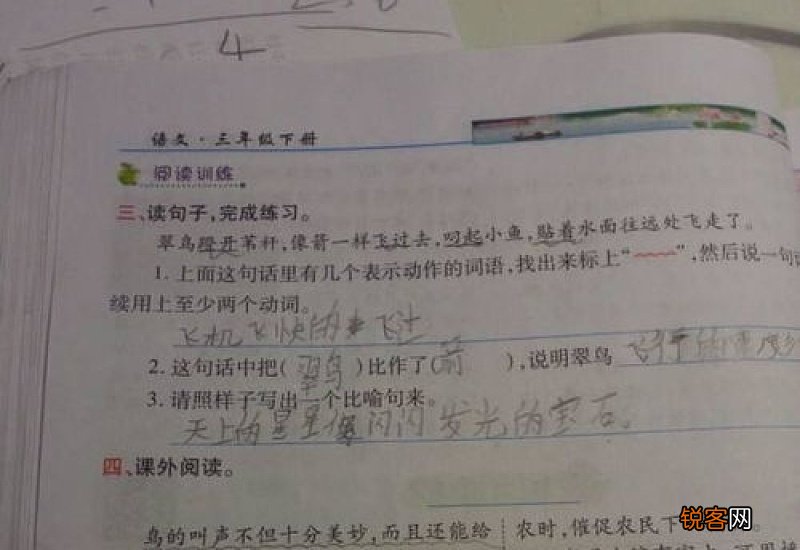 4
语文·三年级下册
阅读训练
三、读句子,完成练习。
翠鸟蹬开苇杆,像箭一样飞过去,叼起小鱼,贴着水面往远处飞走了。
1. 上面这句话里有几个表示动作的词语,找出来标上“ ”,然后说一句话
续用上至少两个动词。
飞机飞快的 飞过
2. 这句话中把( 翠鸟 )比作了( 箭 ),说明翠鸟 飞行的
3. 请照样子写出一个比喻句来。
天上的星星像闪闪发光的宝石。
四、课外阅读。
鸟的叫声不但十分美妙,而且还能给
农时,催促农民下
锐客网